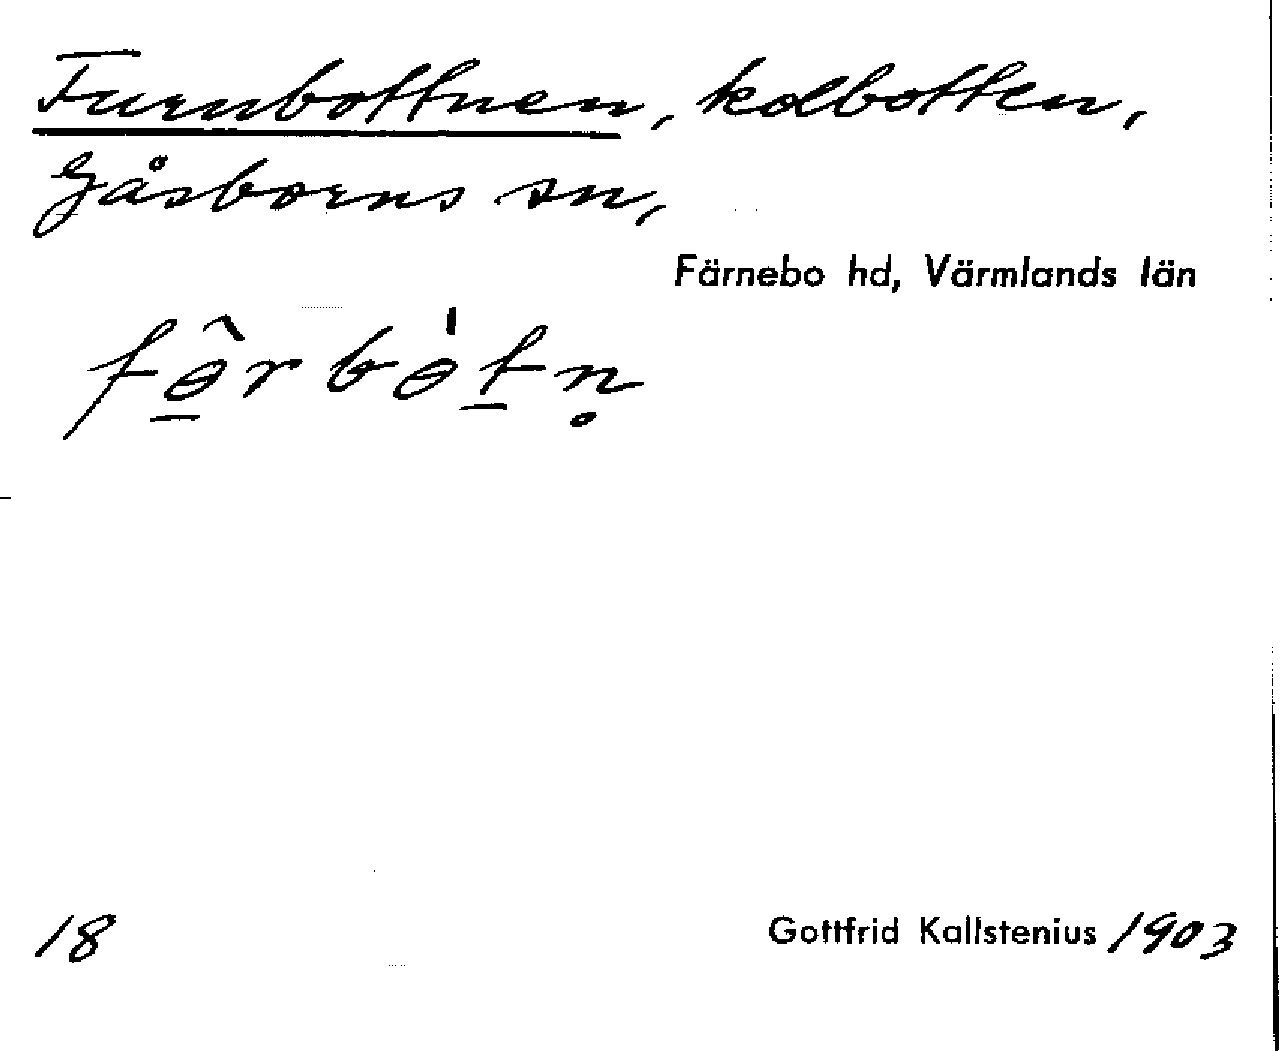 Furnbottnen, kolbotten,
Gåsborns sn,
Färnebo hd, Värmlands län
fɵ̯̂rbɵ̍t̠n̥
18
Gottfrid Kallstenius 1903